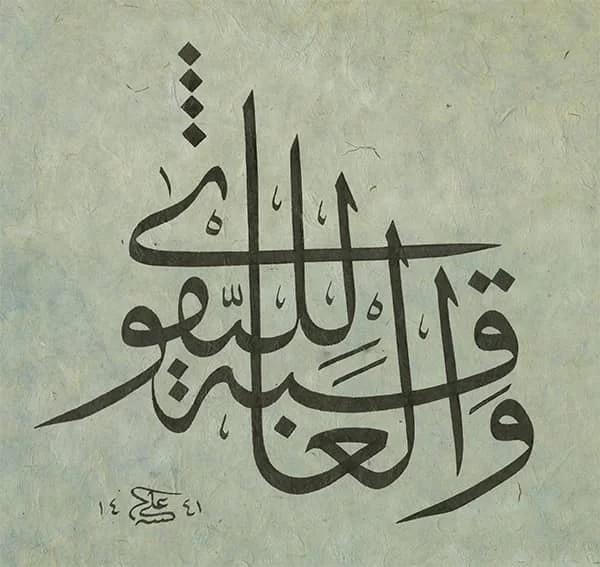 والعاقبة للتقوى
١٤ ٤١